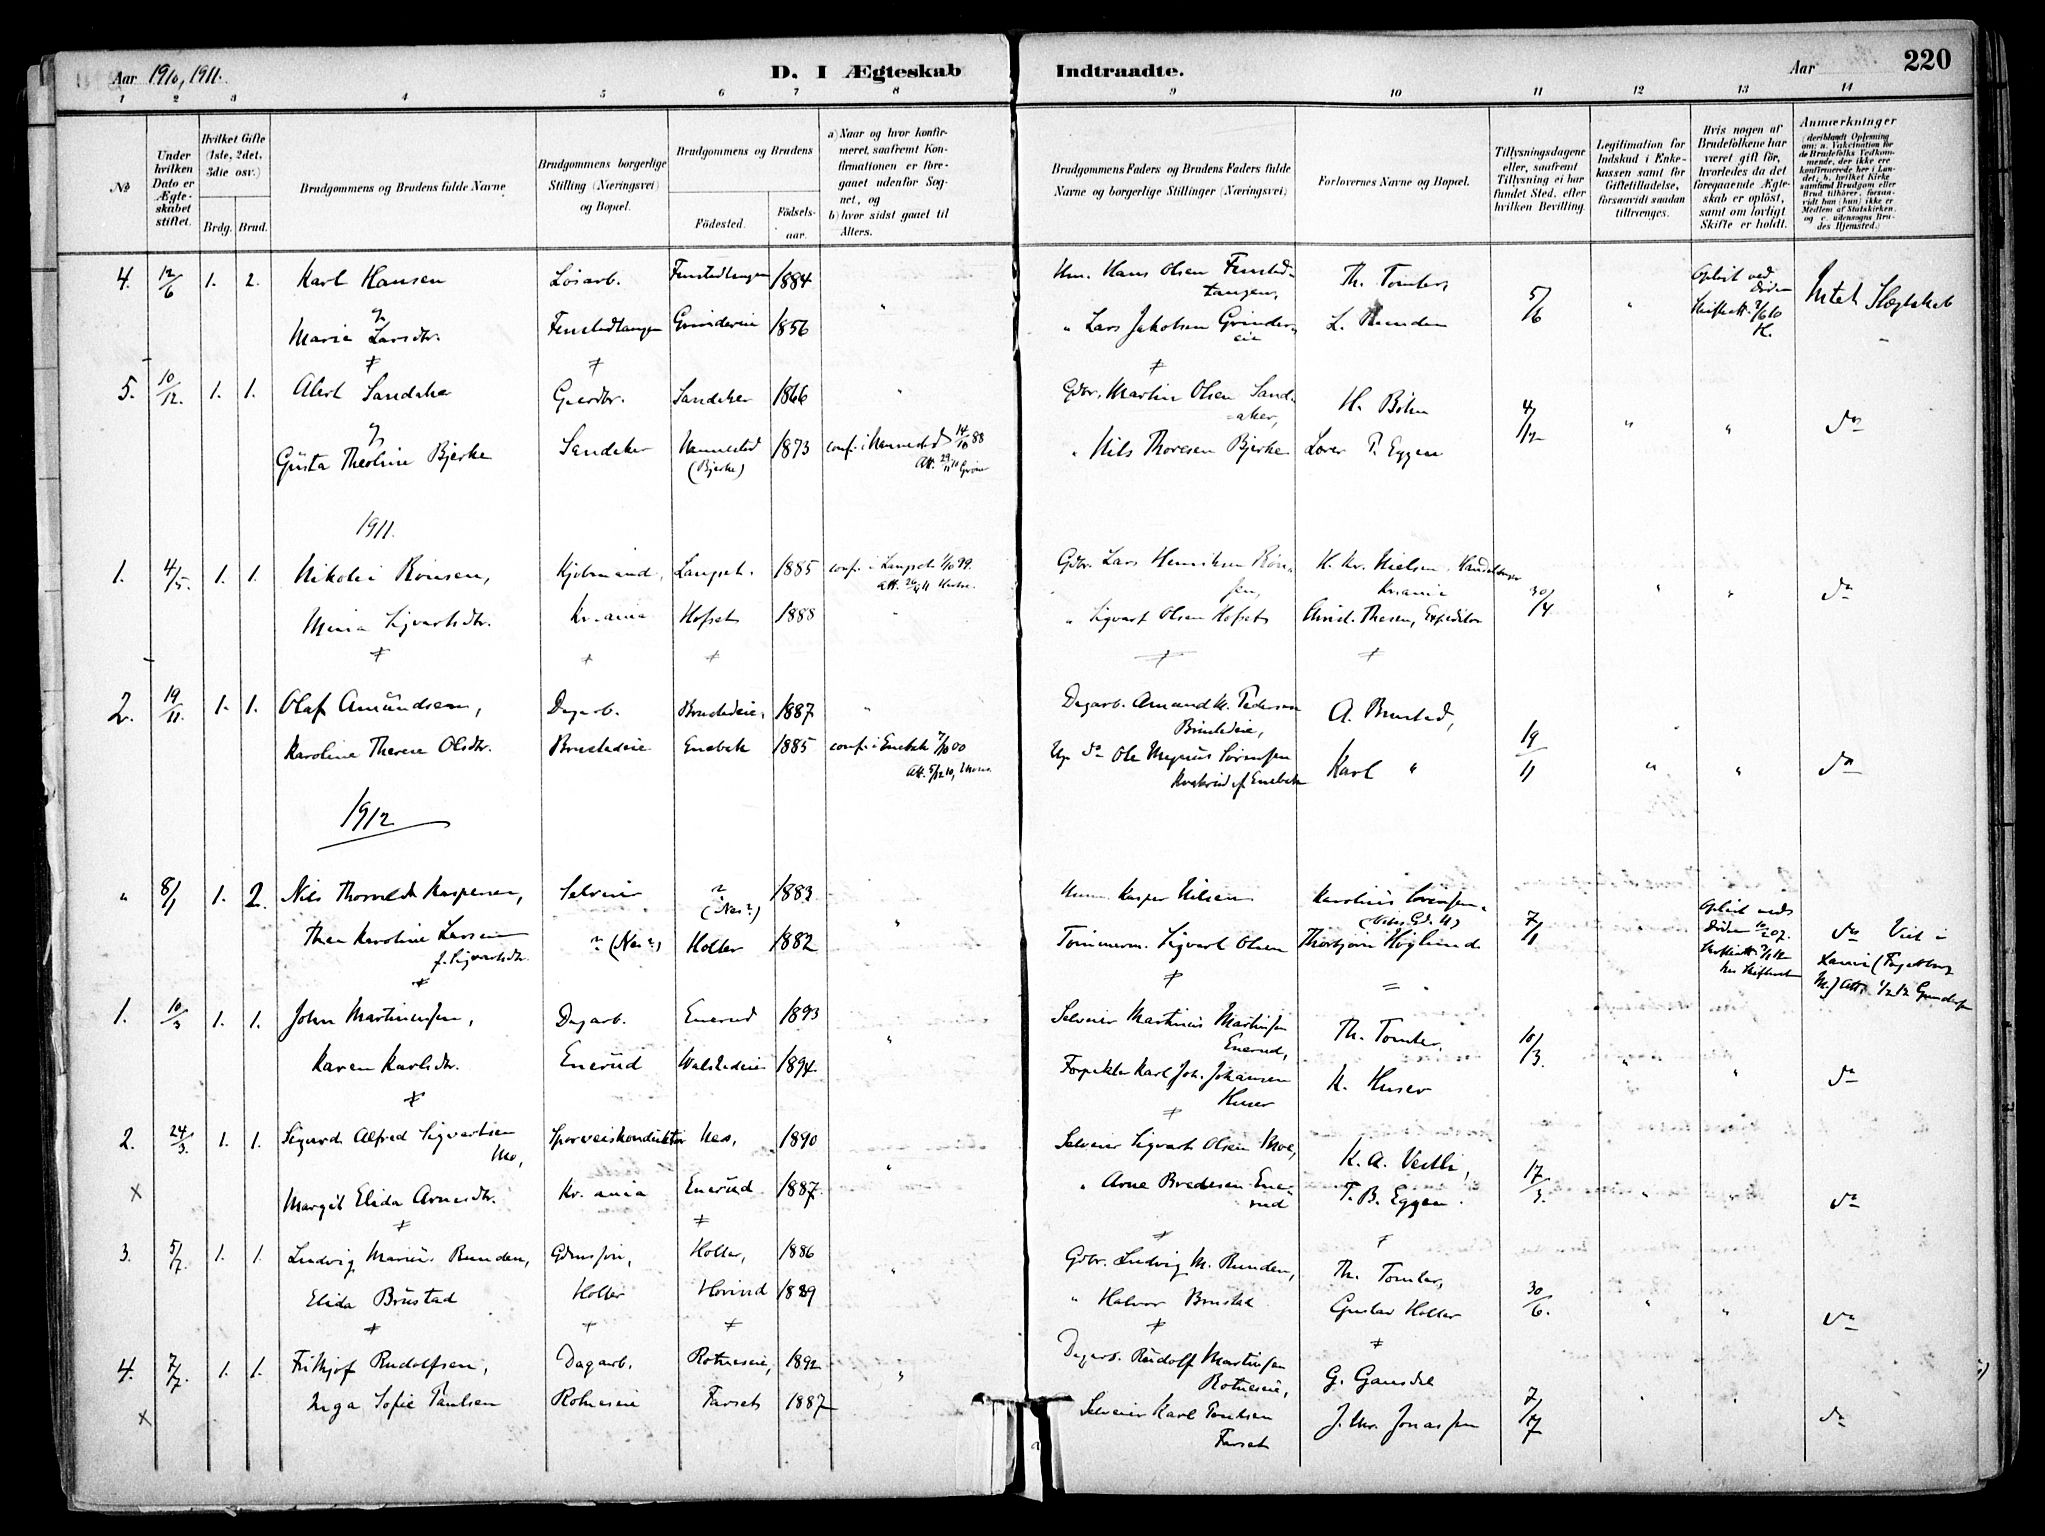 Aar 1910, 1911.
D. I Ægteskab Indtraadte.
Aar
220
1 2 3 4 5 6 7 8 9 10 11 12 13 14
No
Under hvilken Dato er Ægteskabet stiftet.
Hvilket Gifte (1ste, 2det, 3die osv.)
Brdg. Brud.
Brudgommens og Brudens fulde Navne
Brudgommens borgerlige Stilling (Næringsvei) og Bopæl.
Brudgommens og Brudens
Födested. Födselsaar.
a) Naar og hvor konfirmeret, saafremt Konfirmationen er foregaaet udenfor Sognet, og
b) hvor sidst gaaet til Alters.
Brudgommens Faders og Brudens Faders fulde Navne og borgerlige Stillinger (Næringsvei)
Forlovernes Navne og Bopæl.
Tillysningsdagene eller, saafremt Tillysning ei har fundet Sted, efter hvilken Bevilling.
Legitimation for Indskud i Enkekassen samt for Giftetilladelse, forsaavidt saadan tiltrænges.
Hvis nogen af Brudefolkene har været gift för, hvorledes da det foregaaende Ægteskab er oplöst, samt om lovligt Skifte er holdt.
Anmærkninger (deriblandt Oplysning om: a. Vakcination for de Brudefolks Vedkommende, der ikke ere konfirmerede her i Landet, b. hvilket Kirkesamfund Brudgom eller Brud tilhörer, forsaavidt han (hun) ikke er Medlem af Statskirken, og c. udensogns Brudes Hjemsted.)
4. 12/6 1. 2. Karl Hansen Løsarb. Fenstadtangen 1884 " Um. Hans Olsen Fenstadtangen, Th. Tomter, 5/6 " Opløst ved døden Intet Slægtskab
Marie Larsdtr. Fenstadtangen Grindereie 1856 " Lars Jakobsen Grindereie L. Runden
5. 10/12. 1. 1. Alert Sandaker Gaardbr. Sandaker 1866 " Gdbr. Martin Olsen Sandaker, H. Böhn 4/12 " " do
Gusta Theoline Bjerke Sandaker Nannestad (Bjerke) 1873 conf. i Nannestad 14/10 88 " Nils Thoresen Bjerke Lorer P. Eggen
1911.
1. 4/5. 1. 1. Nikolai Rönsen, Kjøbmand, Langset. 1885 conf. i Langset 1/10 99. Gdbr. Lars Henriksen Rönsen, K. Kr. Nielsen, Kr.ania 30/4 " " do
Minia Sigvartsdtr. Kr.ania Hofset 1888 " " Sigvart Olsen Hofset Amd. Thesen, Expeditør
2. 19/11. 1. 1. Olaf Amundsen, Dagarb. Brustadeie, 1887 " Dagarb. Amund M. Pedersen Brustadeie, A. Brustad, 19/11 " " do
Karoline Therese Olsdtr. Brustadeie Enebak 1885 conf. i Enebak 1/10 00 Ole Magnus Sörensen Enebak Karl "
1912
" 8/1 1. 2. Nils Thorvald Kaspersen, Selveier ? (Nes?) 1883 Kasper Nilsen Karolius Sörensen. 7/1 Opløst ved Døden do
Thea Karoline Larsen f. Sigvartsdtr. ? (Nes?) Holter 1882 " Tømmerm. Sigvart Olsen Thorbjørn Höglund
1. 10/3 1. 1. John Martinsen, Dagarb. Enerud 1893 " Selveier Martinius Martinsen Enerud, Th. Tomter, 10/3. " " do
Karen Karlsdtr. Enerud Walstadeie 1894 Forpakter Karl Joh. Johansen Huser K. Huser
2. 24/3. 1. 1. Sigurd Alfred Sigvartsen Mo, Sporveiskonduktør Nes, 1890 " Selveier Sigvart Olsen Moe, K. A. Vestli, 17/3. " do
x Margit Elida Arnesdtr. Kr.ania Enerud 1887. " Arne Bredesen Enerud T. B. Eggen.
3. 5/7. 1. 1. Ludvig Marius Runden, Gdmssøn, Holter, 1886 " Gdbr. Ludvig M. Runden, Th. Tomter, 30/6. " " do
Elida Brustad Holter Hovind 1889 " Halvor Brustad Gustav Holter
4. 7/7. 1. 1. Frithjof Rudolfsen, Dagarb. Rotneseie, 1892 " Dagarb. Rudolf Martinsen Rotneseie, G. Gansdal 7/7 " do
x Inga Sofie Paulsen Rotneseie Farset 1887 Selveier Karl Paulsen Farset J. Chr. Jonassen